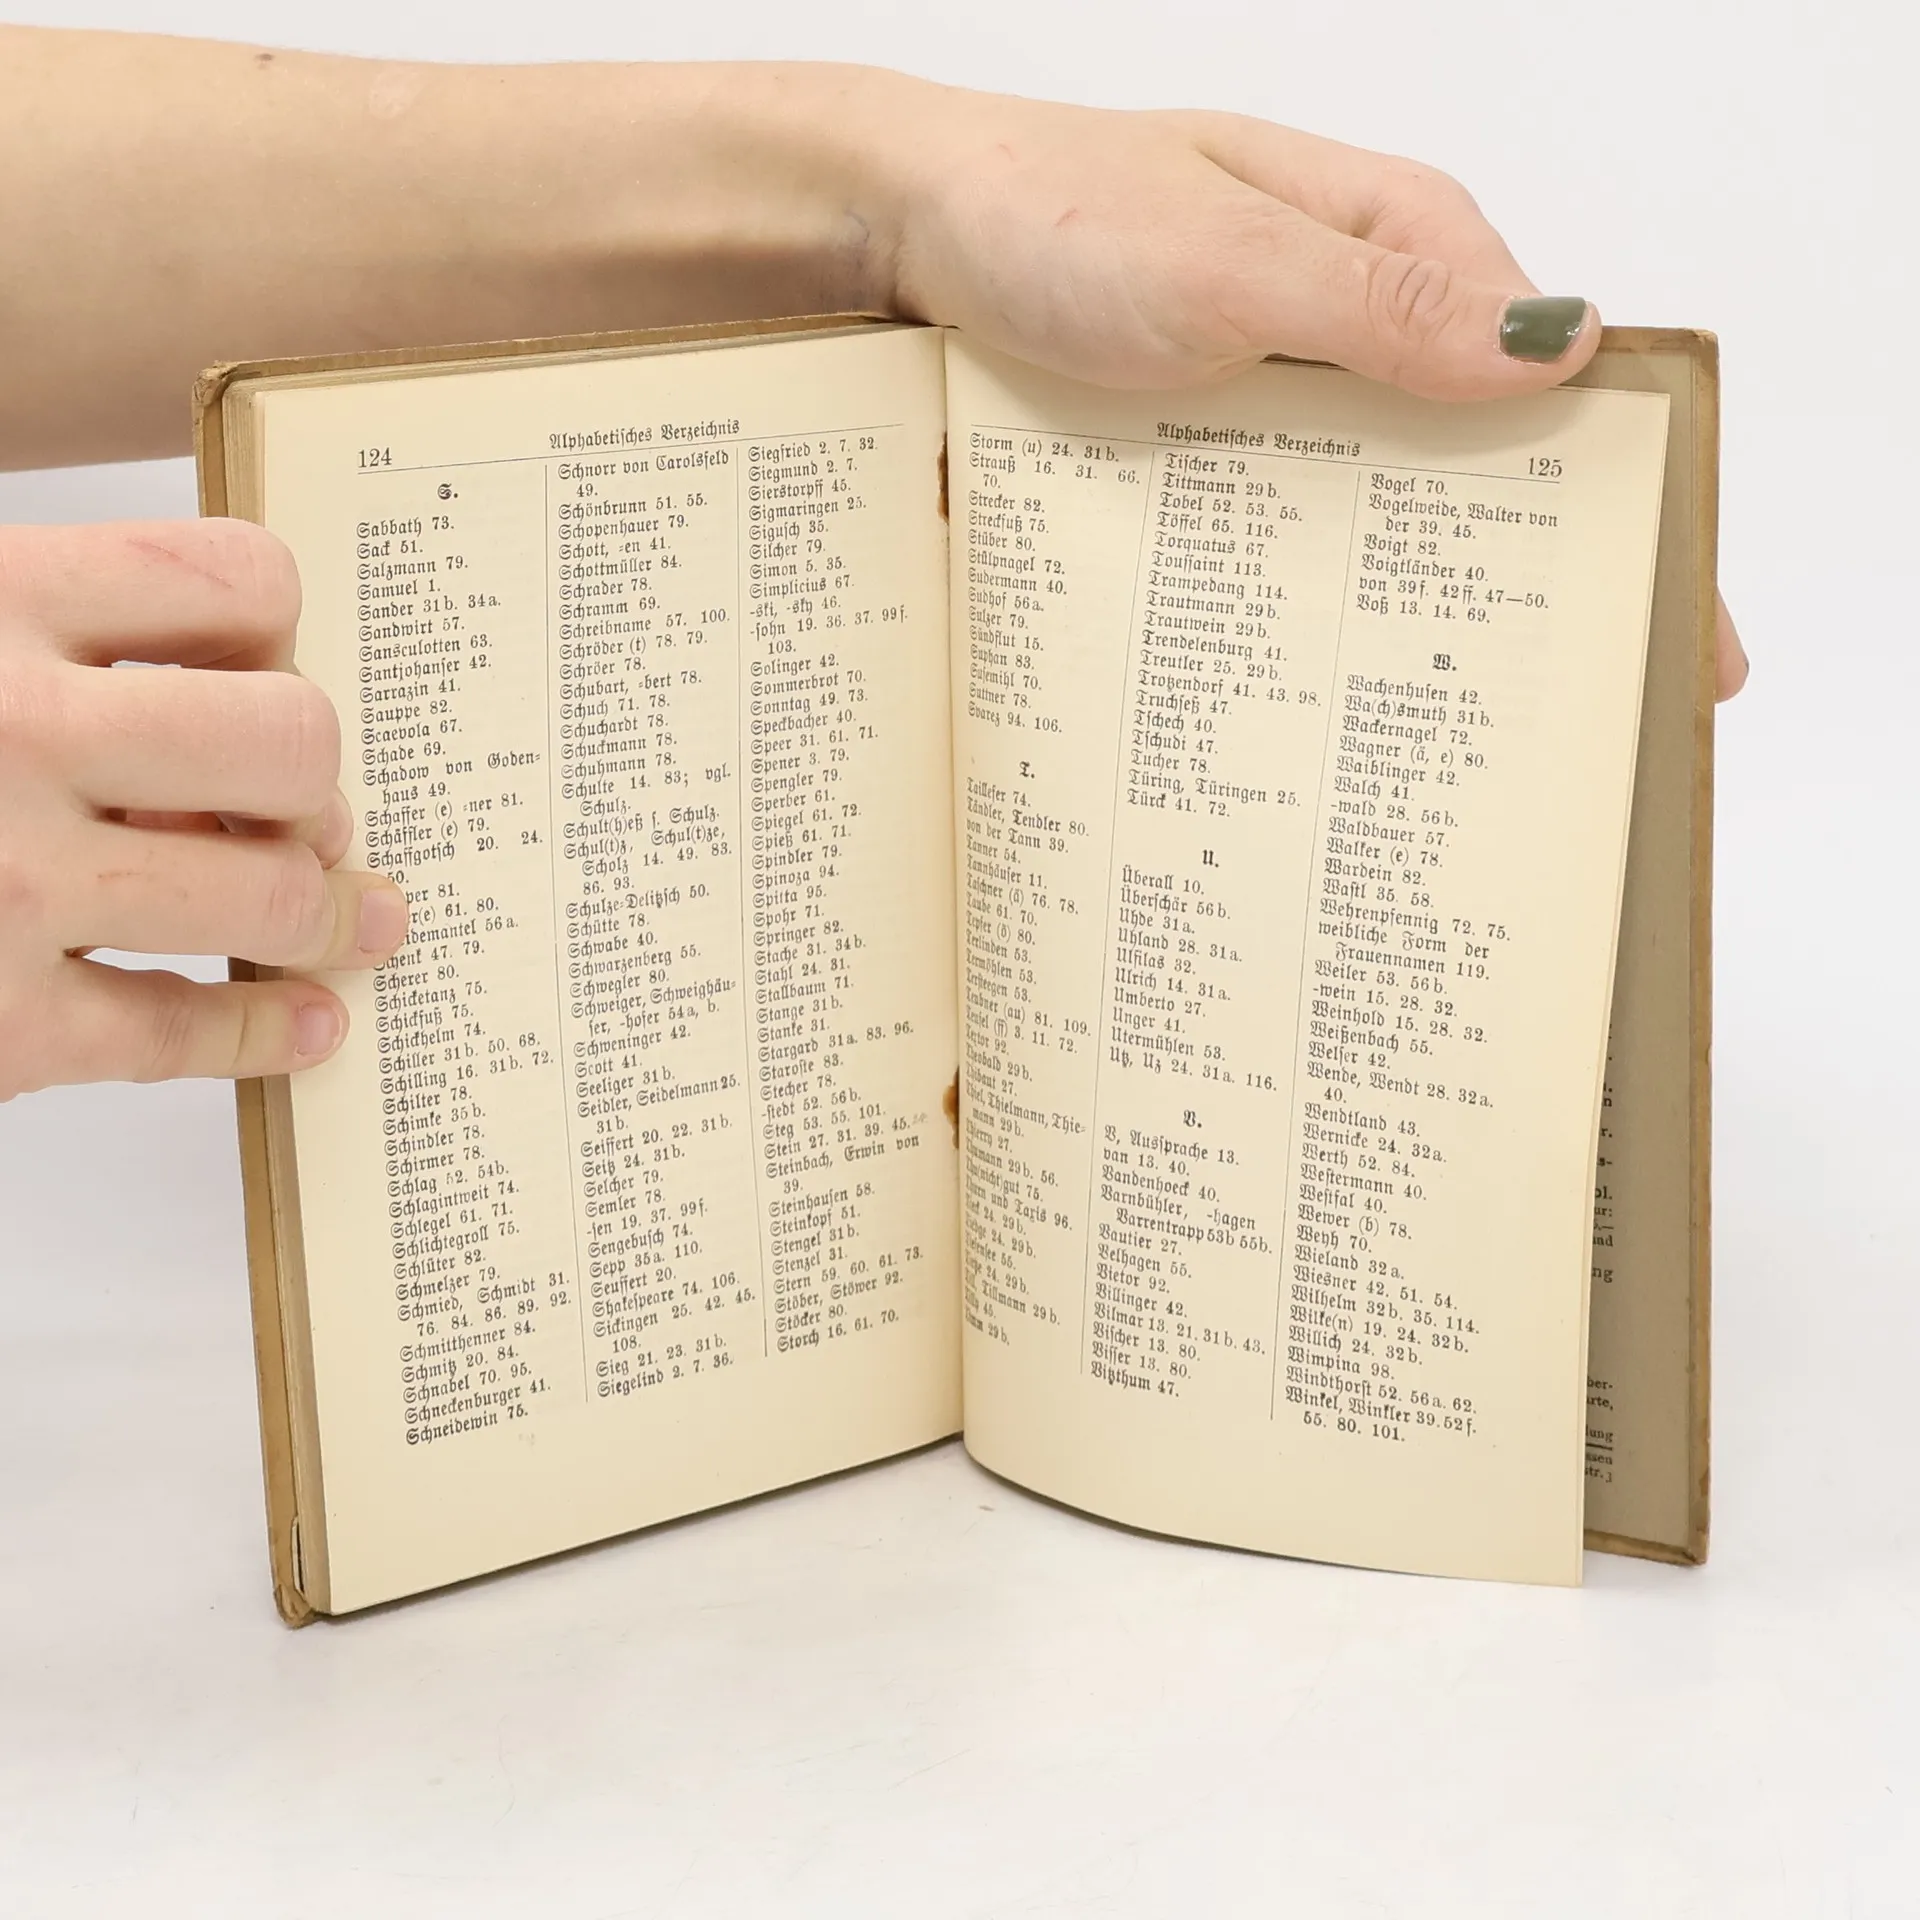 124
Alphabetisches Verzeichnis
S.
Sabbath 73.
Sack 51.
Salzmann 79.
Samuel 1.
Sander 31b. 34a.
Sandwirt 57.
Sansculotten 63.
Santjohanser 42.
Sarrazin 41.
Sauppe 82.
Scaevola 67.
Schade 69.
Schadow von Goden-
haus 49.
Schaffer (e) -ner 81.
Schäffler (e) 79.
Schaffgotsch 20. 24.
50.
per 81.
r(e) 61. 80.
idemantel 56a.
Schenk 47. 79.
Scherer 80.
Schicketanz 75.
Schickfuß 75.
Schickhelm 74.
Schiller 31b. 50. 68.
Schilling 16. 31b. 72.
Schilter 78.
Schimke 35b.
Schindler 78.
Schirmer 78.
Schlag 52. 54b.
Schlagintweit 74.
Schlegel 61. 71.
Schlichtegroll 75.
Schlüter 82.
Schmelzer 79.
Schmied, Schmidt 31.
76. 84. 86. 89. 92.
Schmitthenner 84.
Schmitz 20. 84.
Schnabel 70. 95.
Schneckenburger 41.
Schneidewin 75.
Schnorr von Carolsfeld
49.
Schönbrunn 51. 55.
Schopenhauer 79.
Schott, -en 41.
Schottmüller 84.
Schrader 78.
Schramm 69.
Schreibname 57. 100.
Schröder (t) 78. 79.
Schröer 78.
Schubart, -bert 78.
Schuch 71. 78.
Schuchardt 78.
Schuckmann 78.
Schuhmann 78.
Schulte 14. 83; vgl.
Schulz.
Schult(h)eß s. Schulz.
Schul(t)z, Schul(t)ze,
Scholz 14. 49. 83.
86. 93.
Schulze-Delitzsch 50.
Schütte 78.
Schwabe 40.
Schwarzenberg 55.
Schwegler 80.
Schweiger, Schweighäu-
ser, -hofer 54a, b.
Schweninger 42.
Scott 41.
Seeliger 31b.
Seidler, Seidelmann 25.
31b.
Seiffert 20. 22. 31b.
Seitz 24. 31b.
Selcher 79.
Semler 78.
-sen 19. 37. 99f.
Sengebusch 74.
Sepp 35a. 110.
Seuffert 20.
Shakespeare 74. 106.
Sickingen 25. 42. 45.
108.
Sieg 21. 23. 31b.
Siegelind 2. 7. 36.
Siegfried 2. 7. 32.
Siegmund 2. 7.
Sierstorpff 45.
Sigmaringen 25.
Sigusch 35.
Silcher 79.
Simon 5. 35.
Simplicius 67.
-ski, -sky 46.
-sohn 19. 36. 37. 99f.
103.
Solinger 42.
Sommerbrot 70.
Sonntag 49. 73.
Speckbacher 40.
Speer 31. 61. 71.
Spener 3. 79.
Spengler 79.
Sperber 61.
Spiegel 61. 72.
Spieß 61. 71.
Spindler 79.
Spinoza 94.
Spitta 95.
Spohr 71.
Springer 82.
Stache 31. 34b.
Stahl 24. 31.
Stallbaum 71.
Stange 31b.
Stanke 31.
Stargard 31a. 83. 96.
Staroste 83.
Stecher 78.
-stedt 52. 56b.
Steg 53. 55. 101.
Stein 27. 31. 39. 45.
Steinbach, Erwin von
39.
Steinhausen 58.
Steinkopf 51.
Stengel 31b.
Stenzel 31.
Stern 59. 60. 61. 73.
Stöber, Stöwer 92.
Stöcker 80.
Storch 16. 61. 70.
Alphabetisches Verzeichnis
125
Storm (u) 24. 31b.
Strauß 16. 31. 66.
70.
Strecker 82.
Streckfuß 75.
Stüber 80.
Stülpnagel 72.
Sudermann 40.
Sudhof 56a.
Sulzer 79.
Sündflut 15.
Suphan 83.
Susemihl 70.
Suttner 78.
Svarez 94. 106.
T.
Taillefer 74.
Tändler, Tendler 80.
von der Tann 39.
Tanner 54.
Tannhäuser 11.
Taschner (ä) 76. 78.
Taube 61. 70.
Tepfer (ö) 80.
Terlinden 53.
Termöhlen 53.
Tersteegen 53.
Teubner (au) 81. 109.
Teufel (ff) 3. 11. 72.
Textor 92.
Theobald 29b.
Thibaut 27.
Thiel, Thielmann, Thie-
mann 29b.
Thierry 27.
Thumann 29b. 56.
Thu(nicht)gut 75.
Thurn und Taxis 96.
Tieck 24. 29b.
Tiedge 24. 29b.
Tiefensee 55.
24. 29b.
Till, Tillmann 29b.
Tilly 45.
Timm 29b.
Tischer 79.
Tittmann 29b.
Tobel 52. 53. 55.
Töffel 65. 116.
Torquatus 67.
Toussaint 113.
Trampedang 114.
Trautmann 29b.
Trautwein 29b.
Trendelenburg 41.
Treutler 25. 29b.
Trotzendorf 41. 43. 98.
Truchseß 47.
Tschech 40.
Tschudi 47.
Tucher 78.
Türing, Türingen 25.
Türck 41. 72.
U.
Überall 10.
Überschär 56b.
Uhde 31a.
Uhland 28. 31a.
Ulfilas 32.
Ulrich 14. 31a.
Umberto 27.
Unger 41.
Utermühlen 53.
Utz, Uz 24. 31a. 116.
V.
V, Aussprache 13.
van 13. 40.
Vandenhoeck 40.
Varnbühler, -hagen
Varrentrapp 53b 55b.
Vautier 27.
Velhagen 55.
Vietor 92.
Villinger 42.
Vilmar 13. 21. 31b. 43.
Vischer 13. 80.
Visser 13. 80.
Vitzthum 47.
Vogel 70.
Vogelweide, Walter von
der 39. 45.
Voigt 82.
Voigtländer 40.
von 39f. 42ff. 47—50.
Voß 13. 14. 69.
W.
Wachenhusen 42.
Wa(ch)smuth 31b.
Wackernagel 72.
Wagner (ä, e) 80.
Waiblinger 42.
Walch 41.
-wald 28. 56b.
Waldbauer 57.
Walker (e) 78.
Wardein 82.
Wastl 35. 58.
Wehrenpfennig 72. 75.
weibliche Form der
Frauennamen 119.
Weiler 53. 56b.
-wein 15. 28. 32.
Weinhold 15. 28. 32.
Weißenbach 55.
Welser 42.
Wende, Wendt 28. 32a.
40.
Wendtland 43.
Wernicke 24. 32a.
Werth 52. 84.
Westermann 40.
Westfal 40.
Wewer (b) 78.
Weyh 70.
Wieland 32a.
Wiesner 42. 51. 54.
Wilhelm 32b. 35. 114.
Wilke(n) 19. 24. 32b.
Willich 24. 32b.
Wimpina 98.
Windthorst 52. 56a. 62.
Winkel, Winkler 39. 52f.
55. 80. 101.